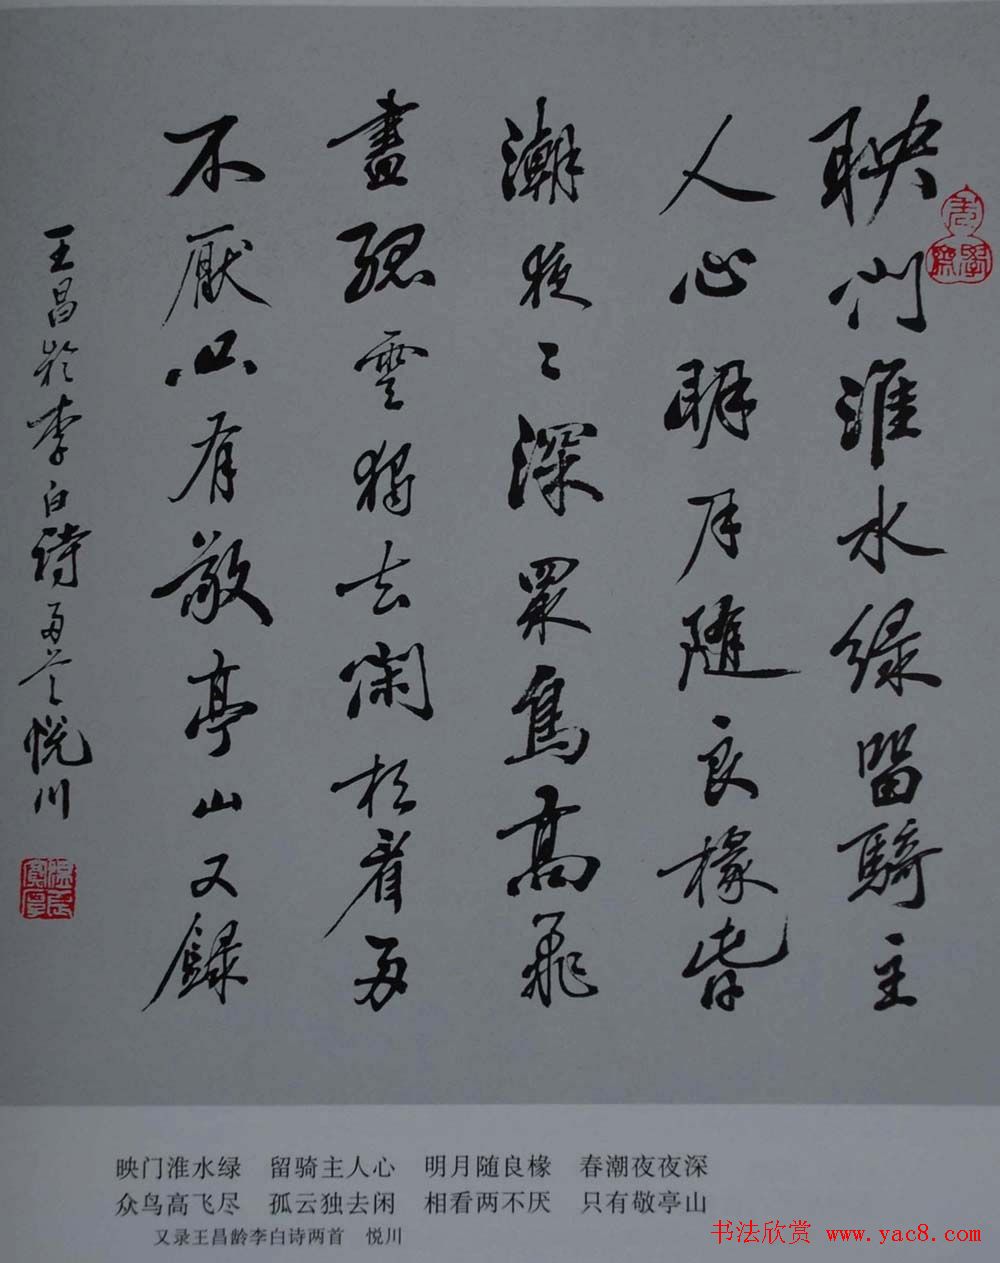 映门淮水绿留骑主
人心明月随良椽皆
潮夜〻深眾鳥高飛
盡孤雲獨去闲相看两
不厭只有敬亭山又録
王昌龄李白詩两首悦川
映门淮水绿　留骑主人心　明月随良椽　春潮夜夜深
众鸟高飞尽　孤云独去闲　相看两不厌　只有敬亭山
又录王昌龄李白诗两首　悦川
书法欣赏 www.yac8.com